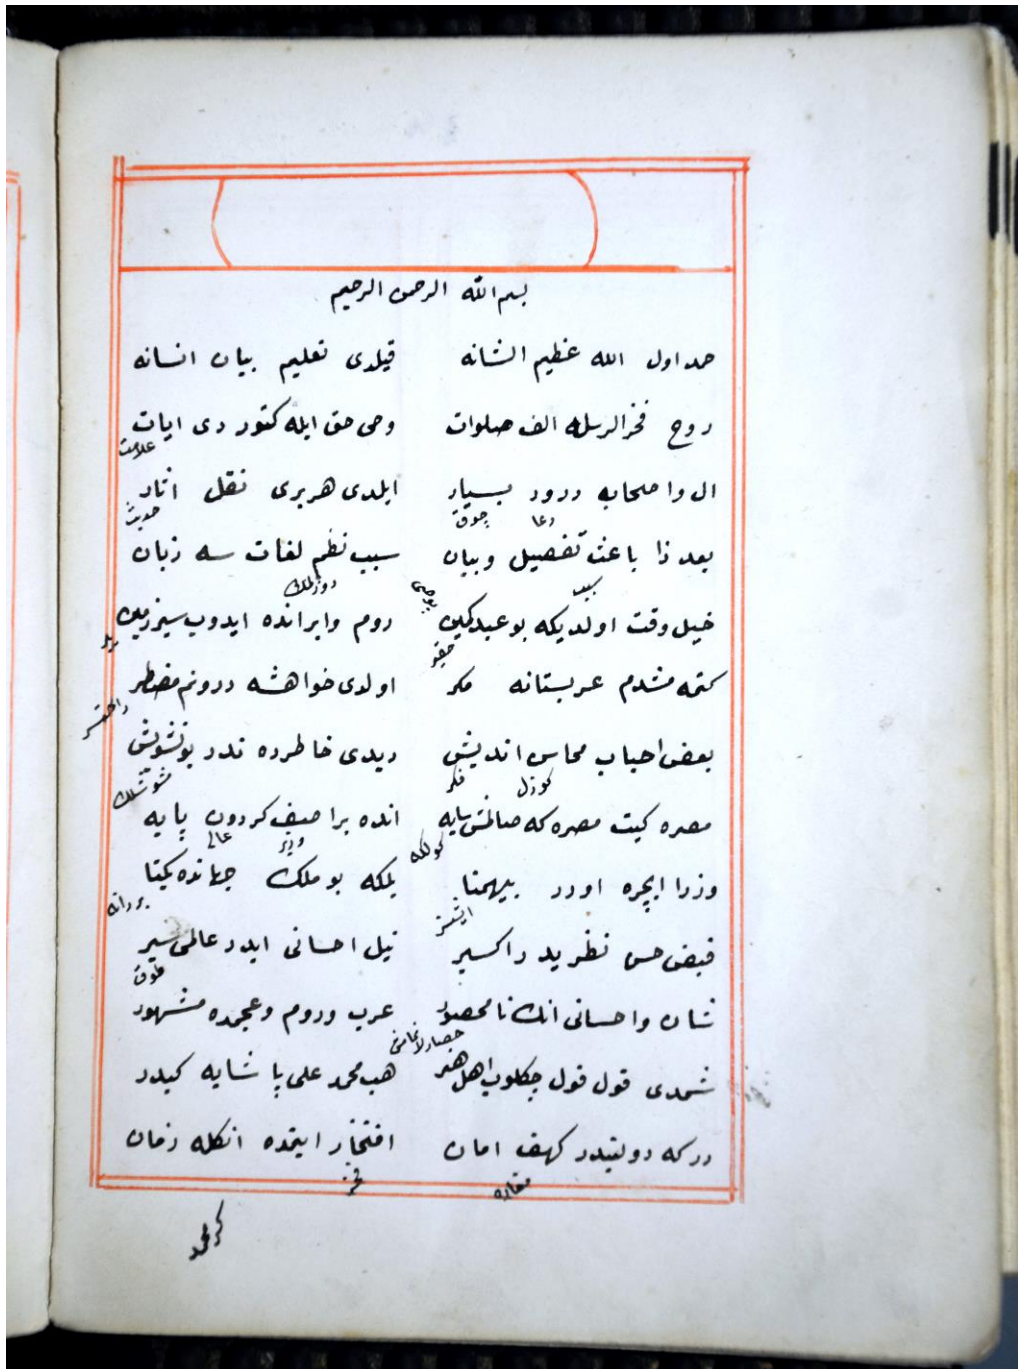 بسم الله الرحمن الرحيم
حمد اول الله عظيم الشانه قيلدى تعليم بيان انسانه
روح فخر الرسله الف صلوات وحى حق ايله كتوردى ايات
علامت
ال واصحابه درود بسيار ايلدى هربرى نقل اثار
دعا چوق حديث
بعد ذا باعث تفصيل وبيان سبب نظم لغات سه زبان
سبب
خيل وقت اولديكه بو عبد كمين روم وايرانده ايدوب سير زمين
حقير ير
كتمه مشدم عربستانه مكر اولدى خواهشه درونم مضطر
بعض احباب محاسن انديش ديدى خاطرده ندر بو تشويش
كوزل فكر
مصره كيت مصره كه صالمش سايه انده بر اصف كردون پايه
كولكه وزير عالى
وزرا ايچره اودر بيهمتا يلكه بو ملك جهانده يكتا
بر دانه
فيض حسن نظريدر اكسير نيل احسانى ايدر عالمى سير
طوق
شان واحسانى انك نامحصور عرب وروم وعجمده مشهور
شمدى قول قول چكلوب اهل هنر هب محمد على پاشايه كيدر
دركه دولتيدر كهف امان افتخار ايتمده انكله زمان
مغاره فخر